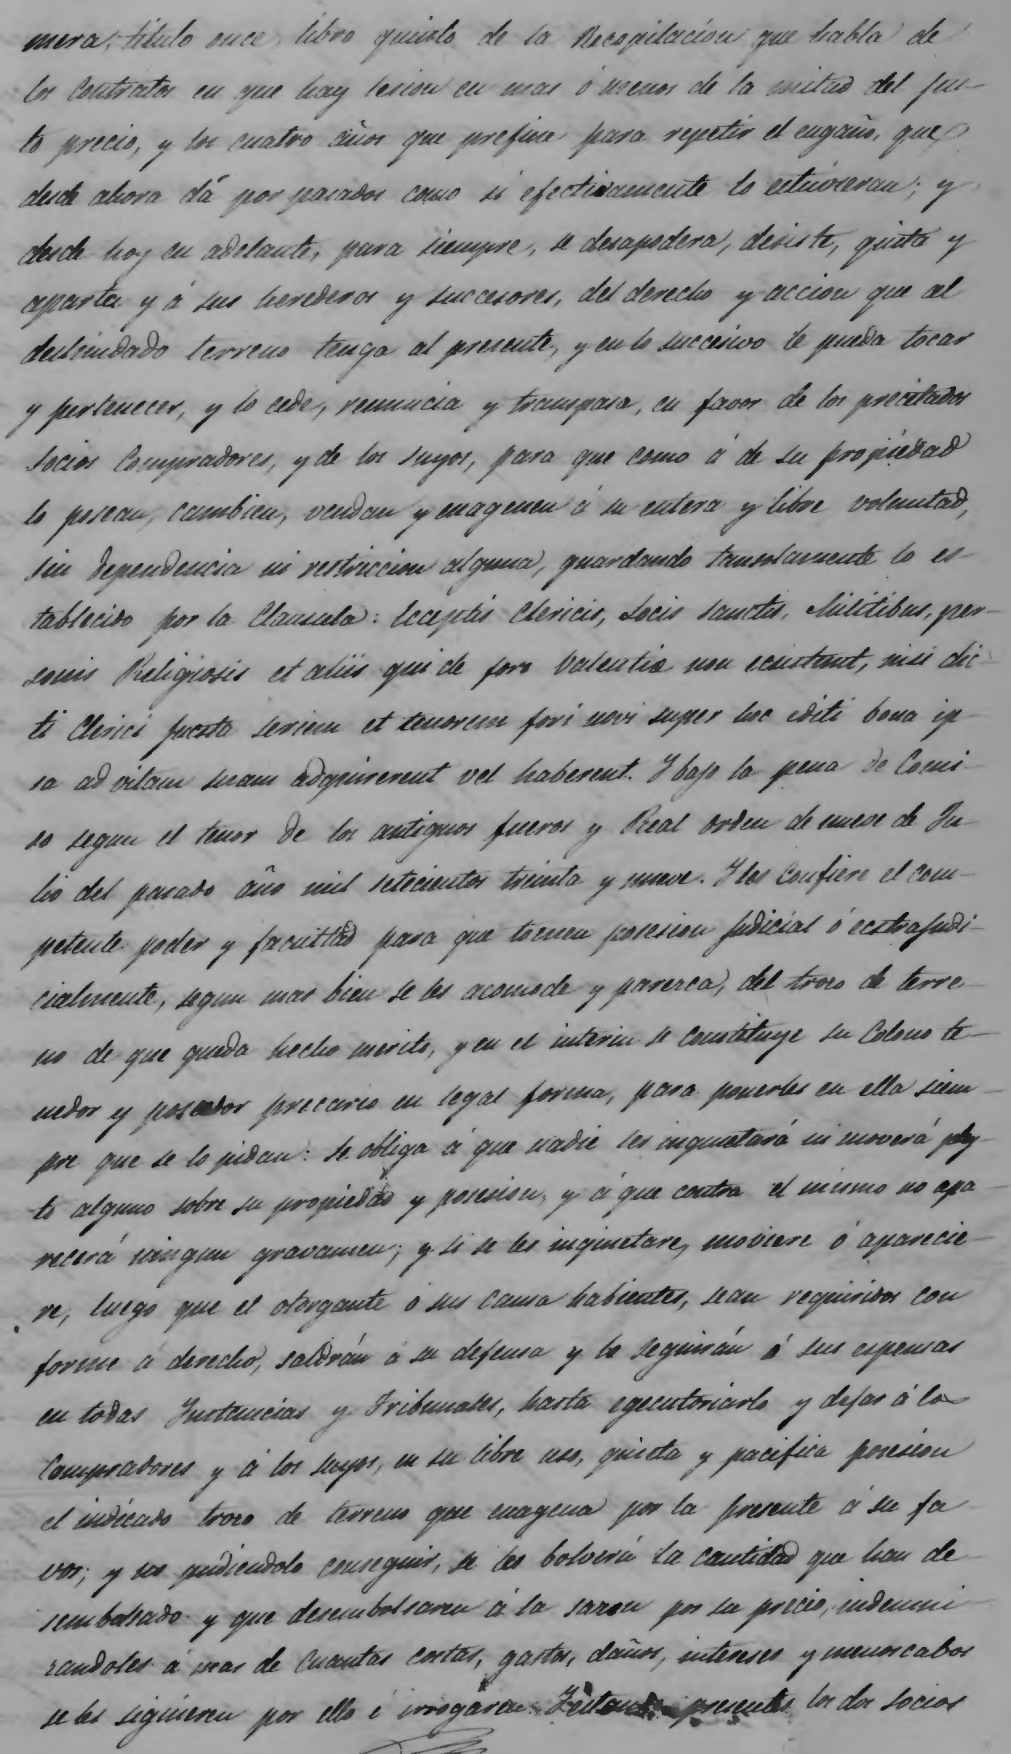 mera, titulo once, libro quinto de la Recopilacion que habla de
los Contratos en que hay lesion en mas ó menos de la mitad del jus-
to precio, y los cuatro años que prefine para repetir el engaño, que
desde ahora dá por pasados como si efectivamente lo estuvieran; y
desde hoy en adelante, para siempre, se desapodera, desiste, quita y
aparta y á sus herederos y succesores, del derecho y accion que al
deslindado terreno tenga al presente, y en lo succesivo le pueda tocar
y pertenecer, y lo cede, renuncia y transpasa, en favor de los precitados
Socios Compradores, y de los suyos, para que como á de su propiedad
lo posean, cambien, vendan y enagenen á su entera y libre voluntad,
sin dependencia ni restriccion alguna, guardando tansolamente lo es-
tablecido por la Clausula: Eceptis Clericis, Locis Sanctis, Militibus, per-
sonis Religiosis et aliis qui de foro Valentiæ non ecsistunt, nisi dic-
ti Clerici jucsta seriem et tenorem fori novi super hoc editi bona ip-
sa ad vitam suam adquirerent vel haberent. Y bajo la pena de Comi-
so segun el tenor de los antiguos fueros y Real orden de nueve de Ju-
lio del pasado año mil setecientos treinta y nueve. Y les Confiere el com-
petente poder y facultad para que tomen posesion judicial ó ecstrajudi-
cialmente, segun mas bien se les acomode y paresca, del troso de terre-
no de que queda hecho merito, y en el interin se constituye su Colono te-
nedor y poseedor precario en legal forma, para ponerles en ella siem-
pre que se lo pidan: se obliga á que nadie les inquietará ni moverá pley-
to alguno sobre su propiedad y posesion, y á que contra el mismo no apa-
recerá ningun gravamen; y si se les inquietare, moviere ó aparecie-
re, luego que el otorgante ó sus causa habientes, sean requiridos con
forme á derecho, saldrán á su defensa y lo seguirán á sus espensas
en todas Instancias y Tribunales, hasta egecutoriarlo y dejar á los
Compradores y á los suyos, en su libre uso, quieta y pacifica posesion
el indicado troso de terreno que enagena por la presente á su fa
vor; y no pudiendolo conseguir, se les bolverá la cantidad que han de
sembolsado y que desembolsaren á la sazon por su precio, indemni
zandoles á mas de Cuantas costas, gastos, daños, intereses y menoscabos
se les siguieren por ello é irrogaren. Y estando presentes los dos socios